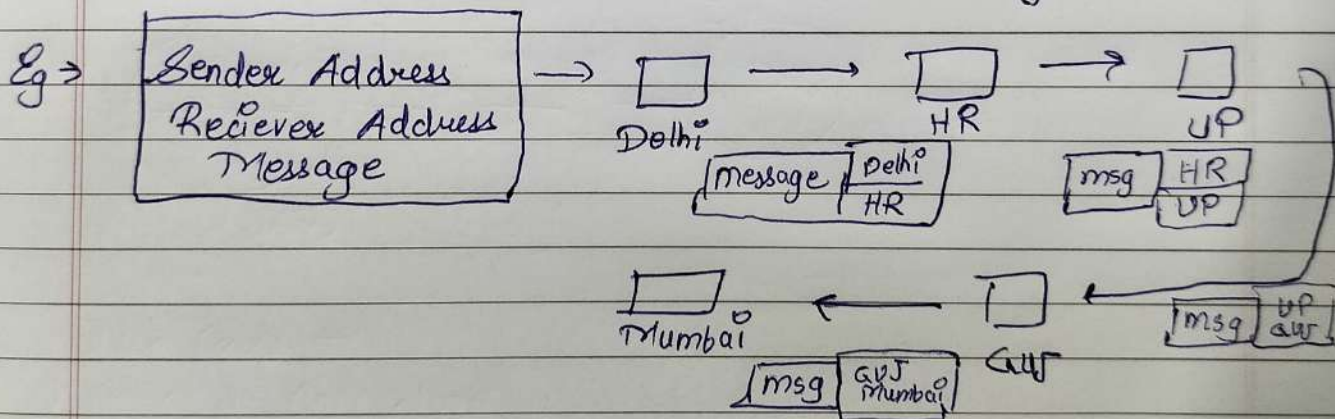 Eg →
Sender Address
Reciever Address
Message
Delhi
HR
UP
message Delhi
HR
msg HR
UP
msg UP
GUJ
GUJ
Mumbai
msg GUJ
Mumbai